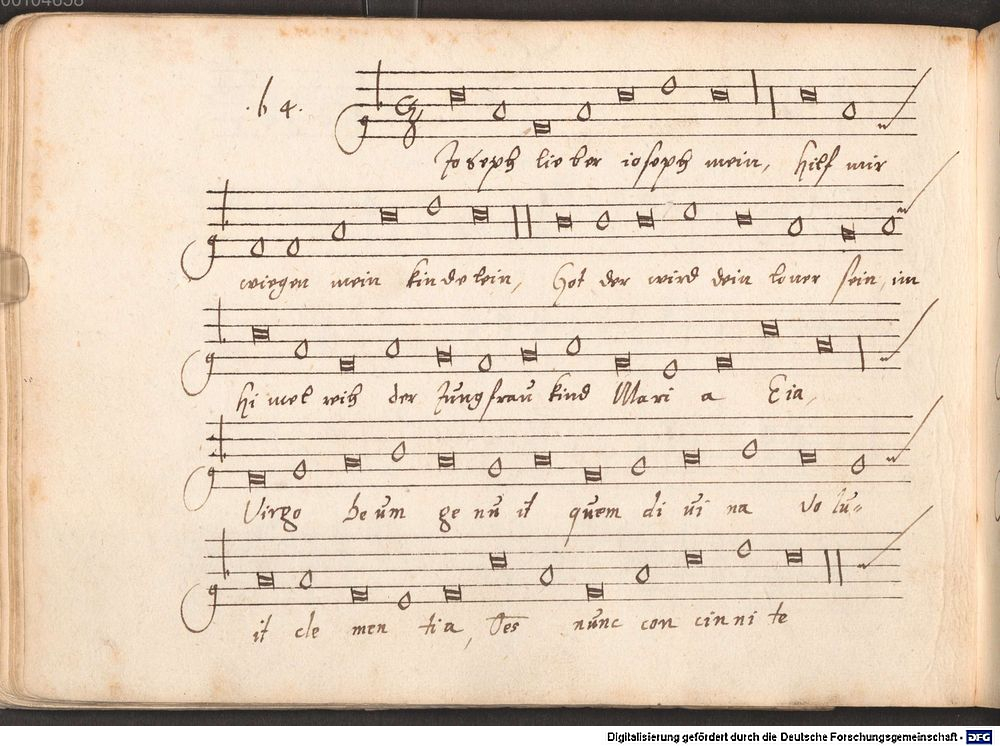 00104658
.b 4.
Joseph lieber ioseph mein, hilf mir
wiegen mein kindelein, Got der wird dein loner sein, im
himel reich der Jungfrau kind Mari a Eia,
Virgo deum ge nu it quem di ui na volu-
it cle men tia, Oēs nunc con cin ni te
Digitalisierung gefördert durch die Deutsche Forschungsgemeinschaft - DFG